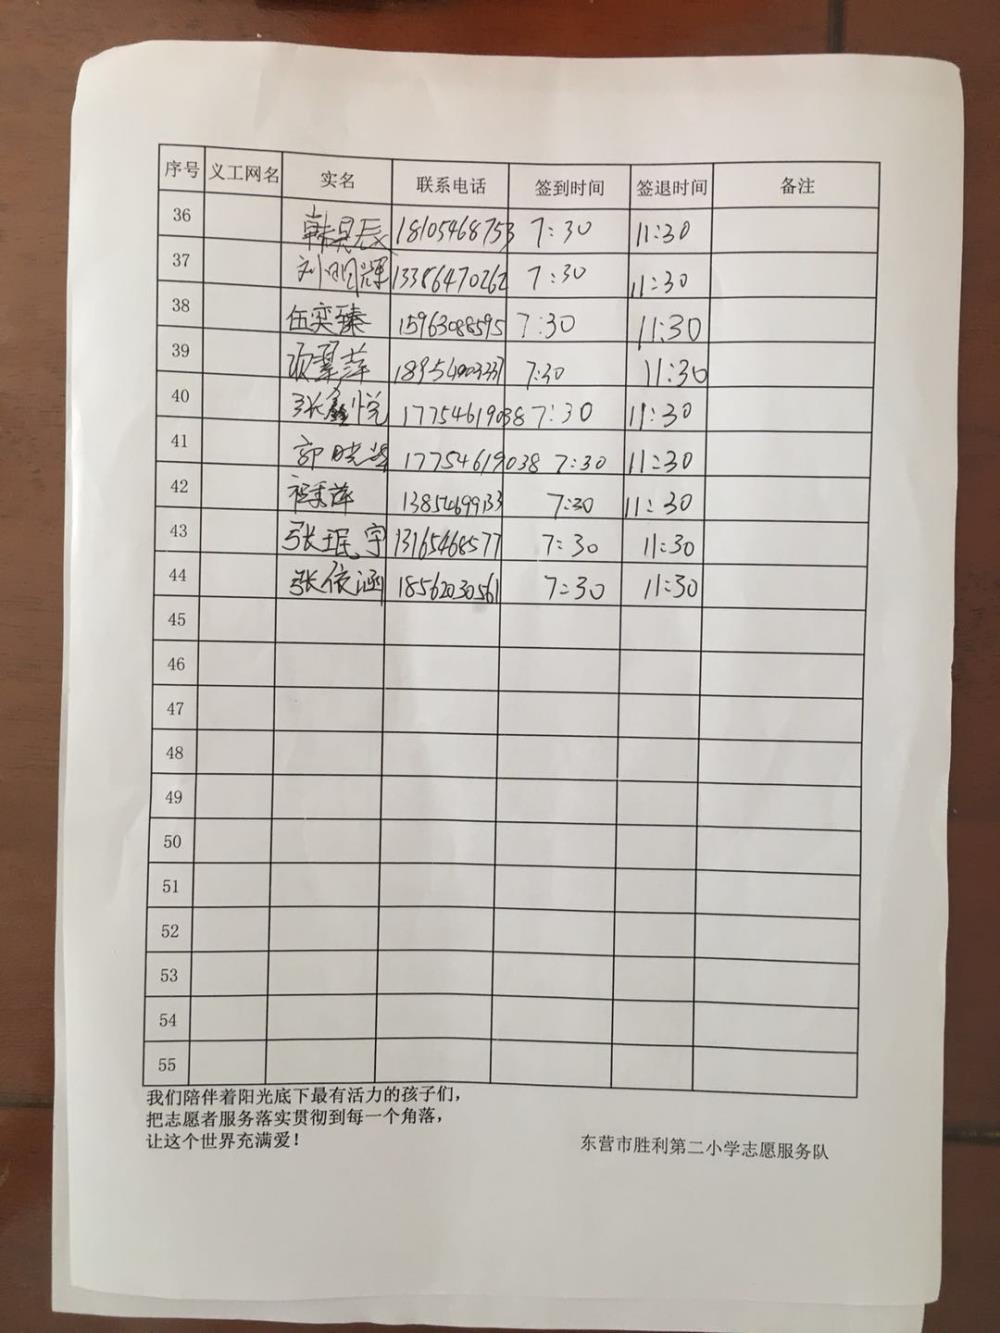 序号 义工网名 实名 联系电话 签到时间 签退时间 备注
36 韩昊辰 18105468753 7:30 11:30
37 刘明辉 13386470262 7:30 11:30
38 伍奕臻 15963088595 7:30 11:30
39 萍 18954003337 7:30 11:30
40 张鑫悦 17754619038 7:30 11:30
41 郭晓 17754619038 7:30 11:30
42 程秀萍 13854699133 7:30 11:30
43 张珉宇 13165468577 7:30 11:30
44 张依涵 18562030561 7:30 11:30
45
46
47
48
49
50
51
52
53
54
55
我们陪伴着阳光底下最有活力的孩子们，
把志愿者服务落实贯彻到每一个角落，
让这个世界充满爱！
东营市胜利第二小学志愿服务队